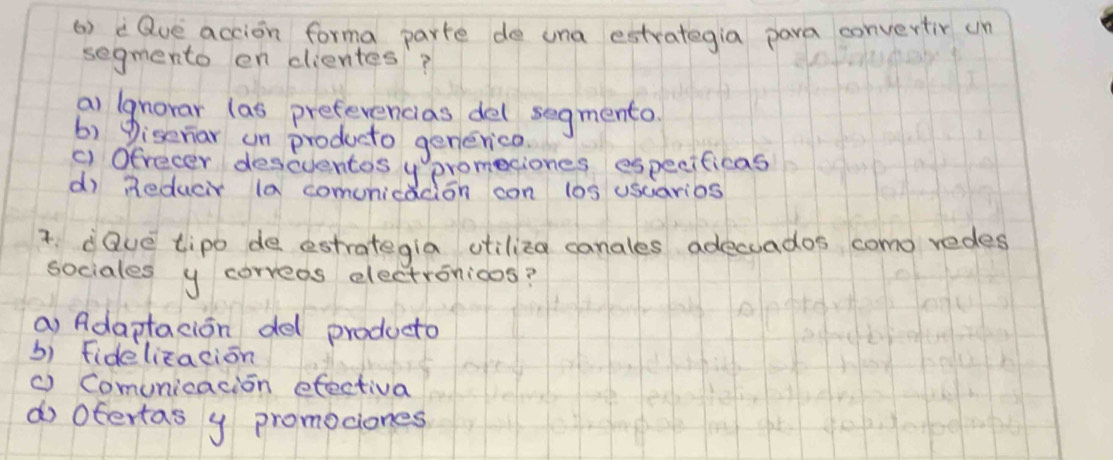 6) ¿Qué acción forma parte de una estrategia para convertir un
segmento en clientes?
a) Ignorar las preferencias del segmento.
b) Diseñar un producto genérico.
c) Ofrecer descuentos y promociones especificas
d) Reducir la comunicación con los usuarios
7. ¿Qué tipo de estrategia utiliza canales adecuados como redes
sociales y correos electrónicos?
a) Adaptación del producto
b) Fidelización
c) Comunicación efectiva
d) Ofertas y promociones